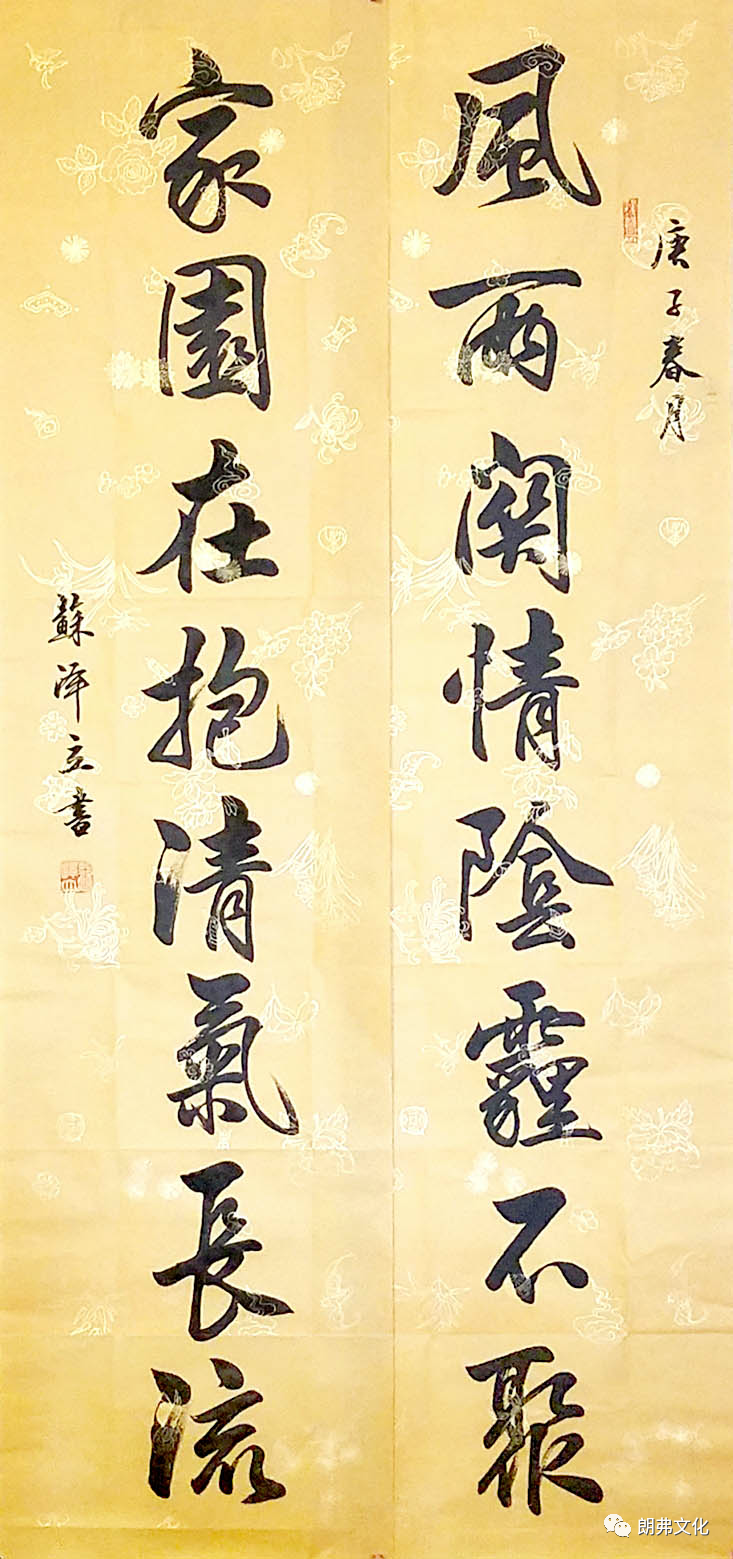 庚子春月
風雨関情陰霾不聚
家園在抱清氣長流
蘇澤立書
朗弗文化